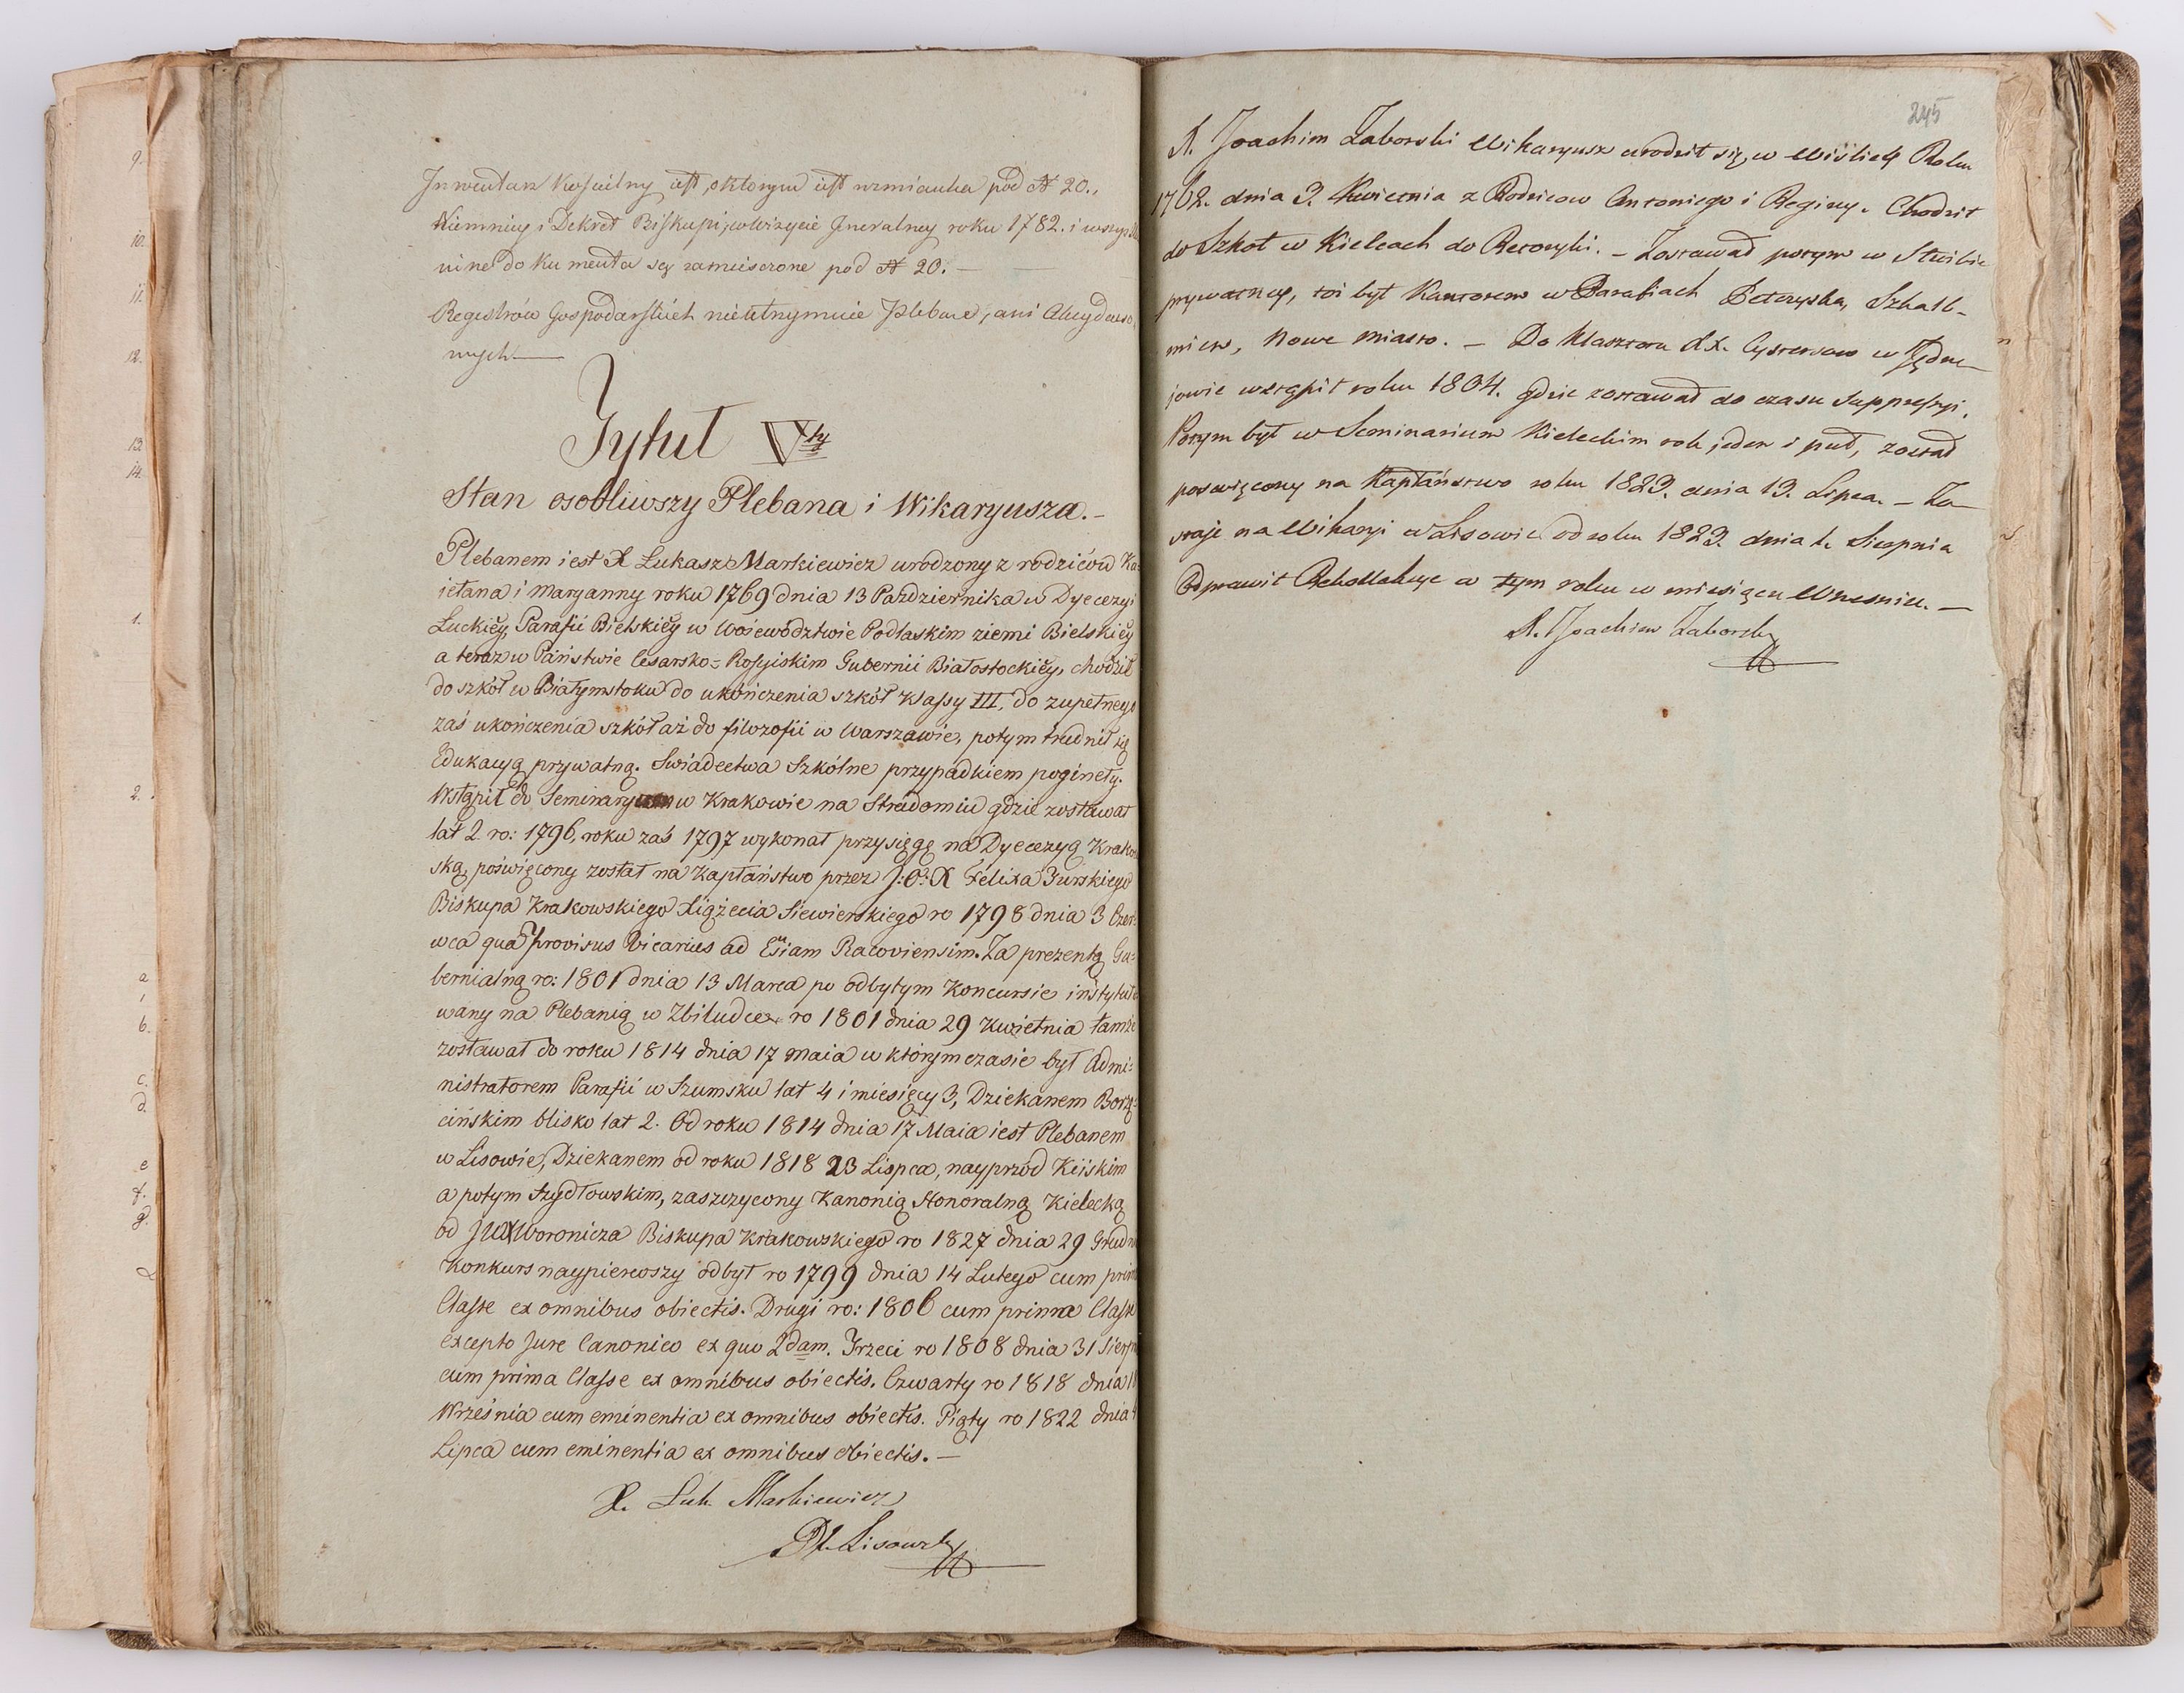 9.
10.
11.
12.
13.
14.
1.
2.
a
b.
c.
d.
e
f.
g.
Inwentarz Kościelny iest, o którym iest wzmianka pod N 20.,
w niemniey i Dekret Biskupi, w Wizycie Gneralney roku 1782. i wszys
nine dokumenta są zamisczone pod N 20. —
Regestrów Gospodarskich nieutrzymuie Pleban, ani
nych —
Tytuł Vty
Stan osobliwszy Plebana i Wikaryusza. –
Plebanem iest X Łukasz Markiewicz urodzony z rodziców Ka-
ietana i Maryanny roku 1769 dnia 13 Października w Dyecezyi
Łuckiéy, Parafii Bielskiéy w Woiewództwie Podlaskim ziemi Bielskiéy
a teraz w Państwie Cesarsko-Rossyiskim Gubernii Białostockiéy, chodził
do szkół w Białymstoku do ukończenia szkół Klassy III, do zupełnego
zaś ukończenia szkół aż do filozofii w Warszawie, potym trudnił się
Edukacyą prywatną. Swiadectwa Szkólne przypadkiem poginęły.
Wstąpił do Seminaryum w Krakowie na Stradomiu gdzie zostawał
lat 2 ro: 1796, roku zaś 1797 wykonał przysięgę na Dyecezyą Krakow
ską, poświęcony został na Kapłaństwo przez J: O: X Felixa Turskiego
Biskupa Krakowskiego Xiążęcia Siewierskiego ro 1798 dnia 3 Czer-
wca qua provisus Vicarius ad Esiam Racoviensim. Za prezentą Gu-
bernialną ro: 1801 dnia 13 Marca po odbytym Koncursie instytuto
wany na Plebanią w Zbiludce ro 1801 dnia 29 Kwietnia tamże
zostawał do roku 1814 dnia 17 maia w którym czasie był Admi-
nistratorem Parafii w Szumsku lat 4 i miesięcy 3, Dziekanem Borzę-
cińskim blisko lat 2. Od roku 1814 dnia 17 Maia iest Plebanem
w Lisowie, Dziekanem od roku 1818 23 Lispca, nayprzód Kiiskim
a potym Szydłowskim, zaszczycony Kanonią Honoralną Kielecką
od JWX Woronicza Biskupa Krakowskiego ro 1827 dnia 29 Grudn
Konkurs naypierwszy odbył ro 1799 dnia 14 Lutego cum prim
Classe ex omnibus obiectis. Drugi ro: 1806 cum prima Classe
excepto Jure Canonico ex quo 2dam. Trzeci ro 1808 dnia 31 Sierp
cum prima Classe ex omnibus obiectis. Czwarty ro 1818 dnia
Września cum eminentia ex omnibus obiectis. Piąty ro 1822 dnia
Lipca cum eminentia ex omnibus obiectis. —
X. Łuk. Markiewicz
Pl. Lisowski
245
X. Joachim Zaborski Wikaryusz urodził się w Wiślicy Roku
1762. dnia 3. Kwietnia z Rodzicow Antoniego i Reginy. Chodził
do Szkoł w Kielcach do Retoryki. – Zostawał potym w Służbie
prywatney, toi był Kantorem w Parafiach Beterzyska, Szkalb-
mierz, Nowe Miasto. – Do Klasztoru XX. Cystersow w Jędrze-
jowie wstąpił roku 1804. gdzie zostawał do czasu Suppressyi.
Potym był w Seminarium Kieleckim rok jeden i puł, został
poswięcony na Kapłaństwo roku 1823. dnia 13. Lipca. – Zo-
staje na Wikaryi w Lisowie od roku 1823. dnia 1. Sierpnia
Odprawił Rekollekcye w tym roku w miesiącu Wrzesniu. —
X. Joachim Zaborski